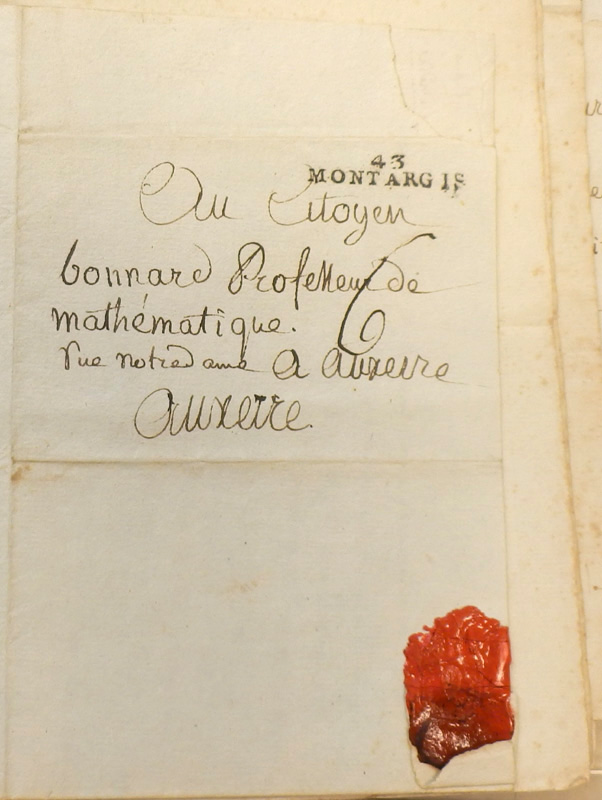 43
MONTARGIS
Au Citoyen
bonnard Professeur de
mathématique. 6
rue notredame a auxerre
auxerre.